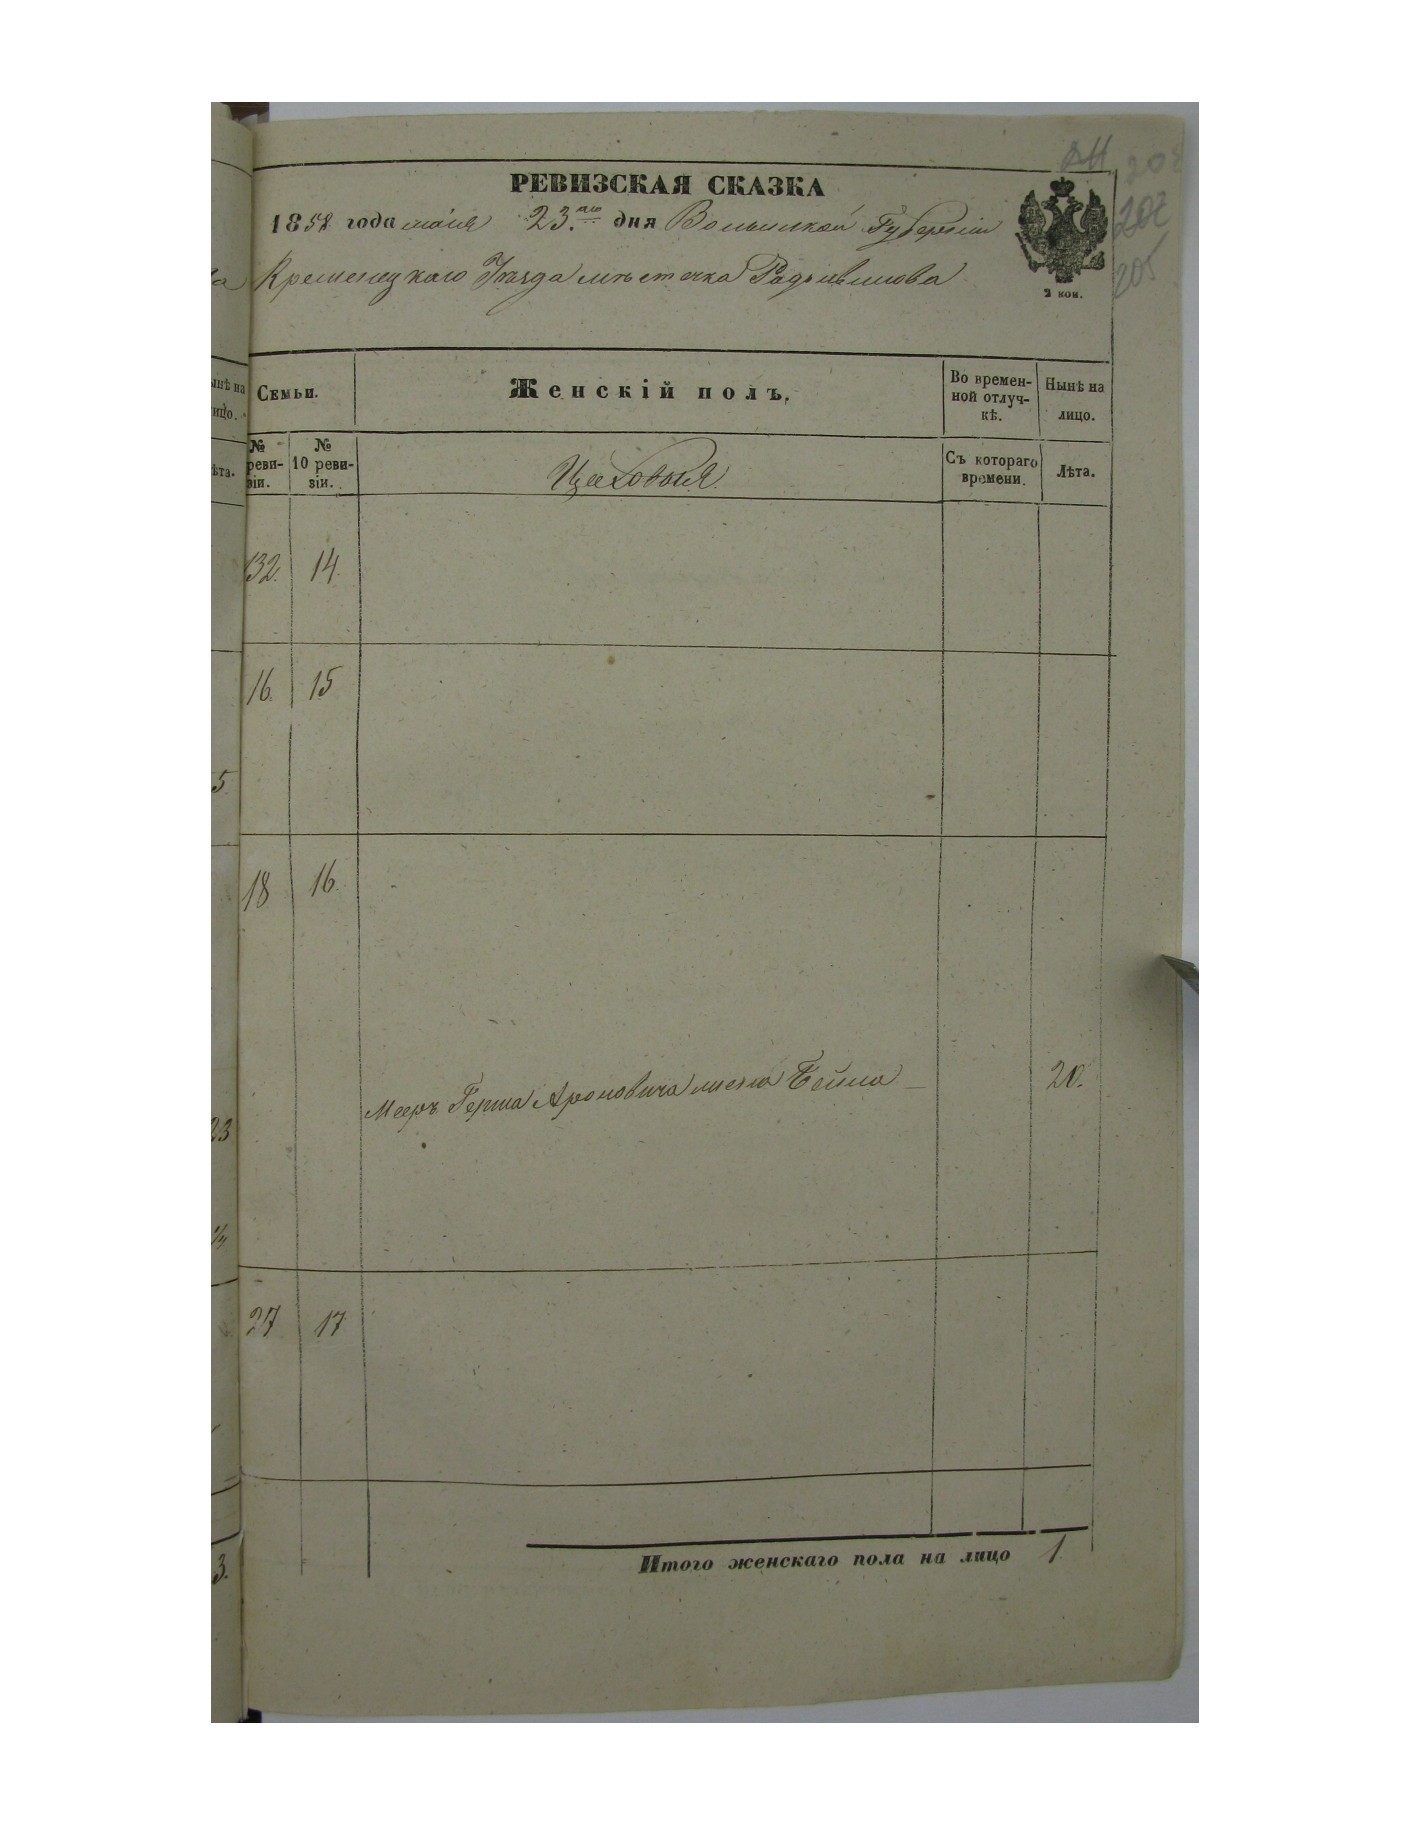 РЕВИЗСКАЯ СКАЗКА
1858 года маія 23.го дня Волынской Губерніи
Кременецкаго Уѣзда мѣстечка Радзивилова
207
205
2 коп.
Семьи.
Женскій полъ.
Во времен-
ной отлуч-
кѣ.
Нынѣ на
лицо.
№
реви-
зіи.
№
10 реви-
зіи.
Цеховыя
Съ котораго
времени.
Лѣта.
132. 14.
16. 15
18 16.
Меера Герша Ароновича жена Бейла 20.
27 17
Итого женскаго пола на лицо 1.